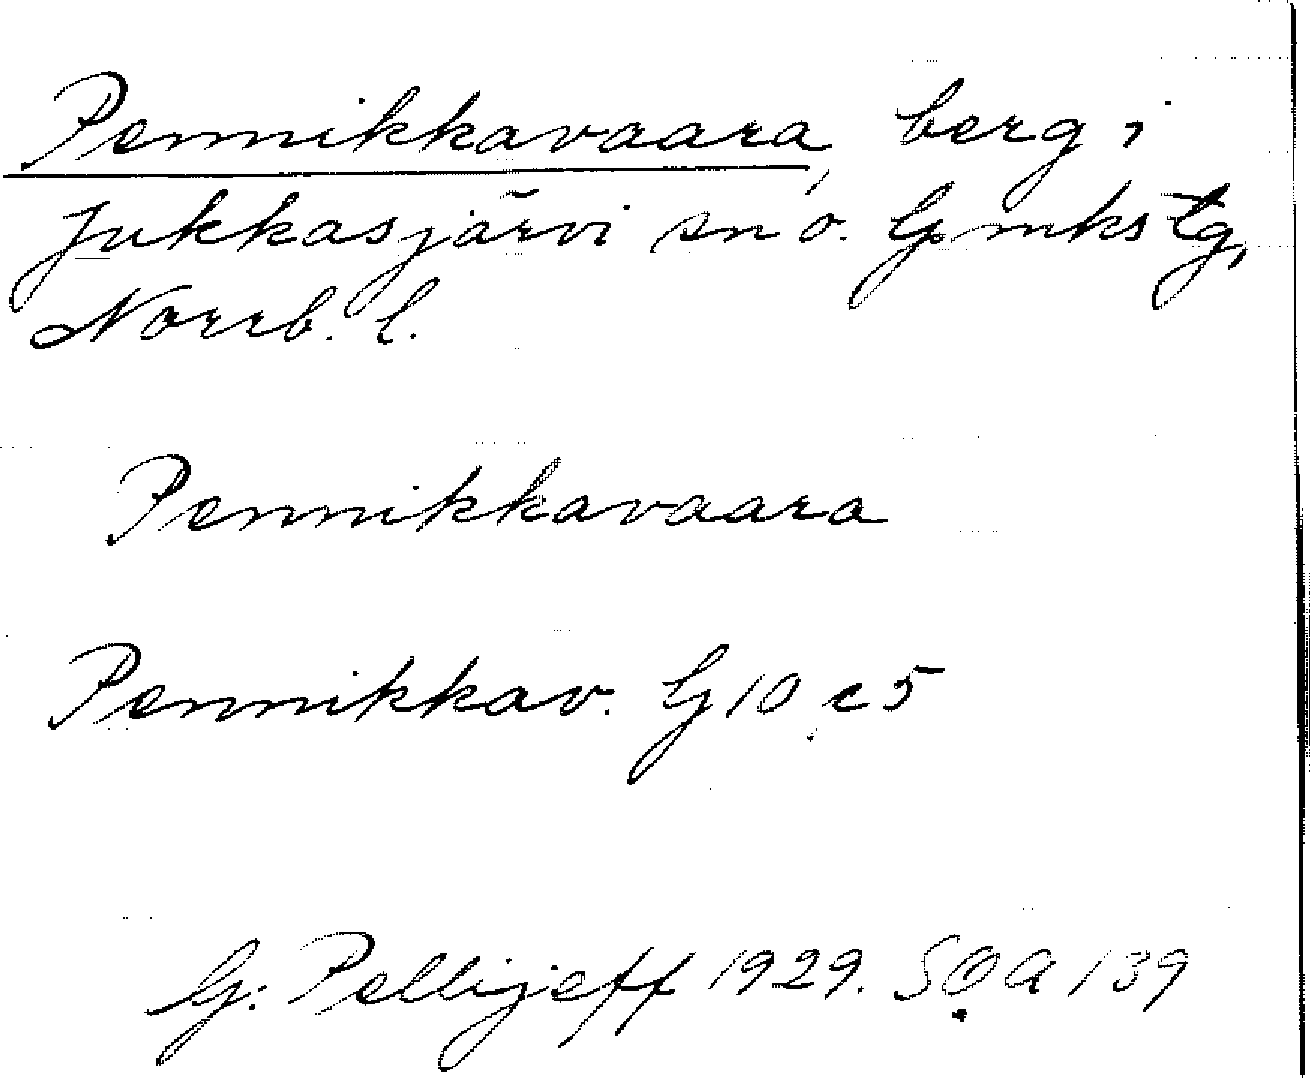 Pennikkavaara, berg i
Jukkasjärvi sn o. Gmkstg,
Norrb. l.
Pennikkavaara
Pennikkav. G 10 c 5
G. Pellijeff 1929. SOA 139